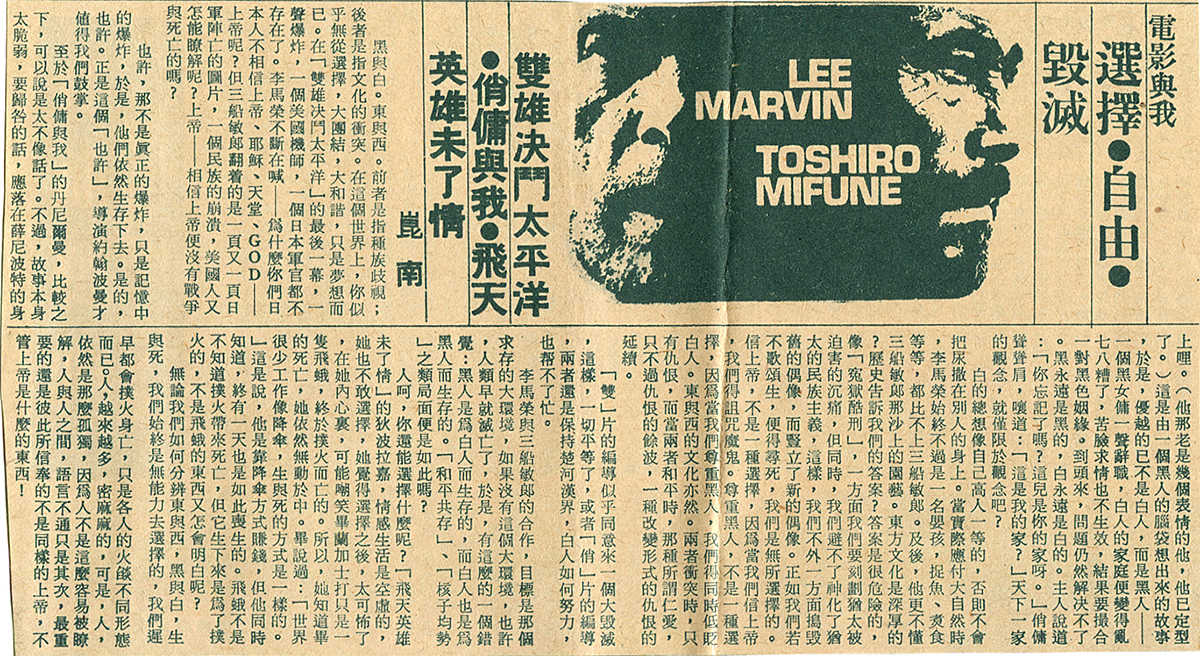 電影與我
選擇●自由●
毀滅
LEE
MARVIN
TOSHIRO
MIFUNE
雙雄決鬥太平洋
●俏傭與我●飛天
英雄未了情
崑南
黑與白。東與西。前者是指種族歧視；
後者是指文化的衝突。在這個世界上，你似
乎無從選擇，大團結，大和諧，只是夢想而
已。在「雙雄決鬥太平洋」的最後一幕，一
聲爆炸，一個美國機師，一個日本軍官都不
存在了。李馬榮不斷在喊——爲什麼你們日
本人不相信上帝、耶穌、天堂、GOD——
上帝呢？但三船敏郎翻着的是一頁又一頁日
軍陣亡的圖片，一個民族的崩潰，美國人又
怎能瞭解呢？上帝——相信上帝便沒有戰爭
與死亡的嗎？
也許，那不是眞正的爆炸，只是記憶中
的爆炸，於是，他們依然生存下去。是的，
也許。正是這個「也許」，導演約翰波曼才
值得我們鼓掌。
至於「俏傭與我」的丹尼爾曼，比較之
下，可以說是太不像話了。不過，故事本身
太脆弱，要歸咎的話，應落在薛尼波特的身
上哩。（他那老是幾個表情的他，他已定型
了。）這是由一個黑人的腦袋想出來的故事
，於是，優越的已不是白人，而是黑人——
一個黑女傭一聲辭職，白人的家庭便變得亂
七八糟了，苦臉求情也不生效，結果要撮合
一對黑色姻緣。到頭來，問題仍然解決不了
。黑永遠是黑的，白永遠是白的。主人說道
：「你忘記了嗎？這兒是你的家呀。」俏傭
聳聳肩，嘆道：「這是我的家？」天下一家
的觀念，就僅限於觀念吧？
白的總想像自己高人一等的，否則不會
把尿撒在別人的身上。當實際應付大自然時
，李馬榮始終不過是一名嬰孩，捉魚、煑食
等等，都比不上三船敏郎。及後，他更不懂
三船敏郎那沙上的園藝。東方文化是深厚的
？歷史告訴我們的答案？答案是很危險的，
像「寃獄酷刑」，一方面我們要刻劃猶太被
迫害的沉痛，但同時，我們避不了神化了猶
太的民族主義，這樣，我們不外一方面搗毀
舊的偶像，而豎立了新的偶像。正如我們若
不歌頌生，便得尋死，我們是無所選擇的。
信上帝，不是一種選擇，因爲當我們信上帝
，我們得詛咒魔鬼。尊重黑人，不是一種選
擇，因爲當我們尊重黑人，我們得同時低貶
白人。東與西的文化亦然。兩者衝突時，只
有仇恨，而當兩者和平時，那種所謂仁愛，
只不過仇恨的餘波，一種改變形式的仇恨的
延續。
「雙」片的編導似乎同意來一個大毀滅
，這樣，一切平等了，或者「俏」片的編導
，兩者還是保持楚河漢界，白人如何努力，
也幫不了忙。
李馬榮與三船敏郎的合作，目標是那個
求存的大環境，如果沒有這個大環境，也許
，人類早就滅亡了，於是，有這麼的一個錯
覺：黑人是爲白人而生存的，而白人也是爲
黑人而生存的。「和平共存」、「核子均勢
」之類局面便是如此嗎？
人呵，你還能選擇什麼呢？「飛天英雄
未了情」的狄波拉嘉，情感生活是空虛的，
她也不敢選擇，她覺得選擇之後，太可怖了
，在她內心裏，可能嘲笑畢蘭加士打只是一
隻飛蛾，終於撲火而亡的。所以，她知道畢
的死亡，她依然無動於中。畢說過：「世界
很少工作像降傘，生與死的方式是一樣的。
」這是說，他是靠降傘方式賺錢，但他同時
知道，終有一天也是如此喪生的。飛蛾不是
不知道撲火會帶來死亡，但它生下來是爲了撲
火的，不是飛蛾的東西又怎會明白呢？
無論我們如何分辨東與西，黑與白，生
與死，我們始終是無能力去選擇的，我們遲
早都會撲火身亡，只是各人的火燄不同形態
而已。人，越來越多，密麻麻的，可是，人，
依然是那麼孤獨，因爲人不是這麼容易被瞭
解，人與人之間，語言不通只是其次，最重
要的還是彼此所信奉的不是同樣的上帝，不
管上帝是什麼的東西！